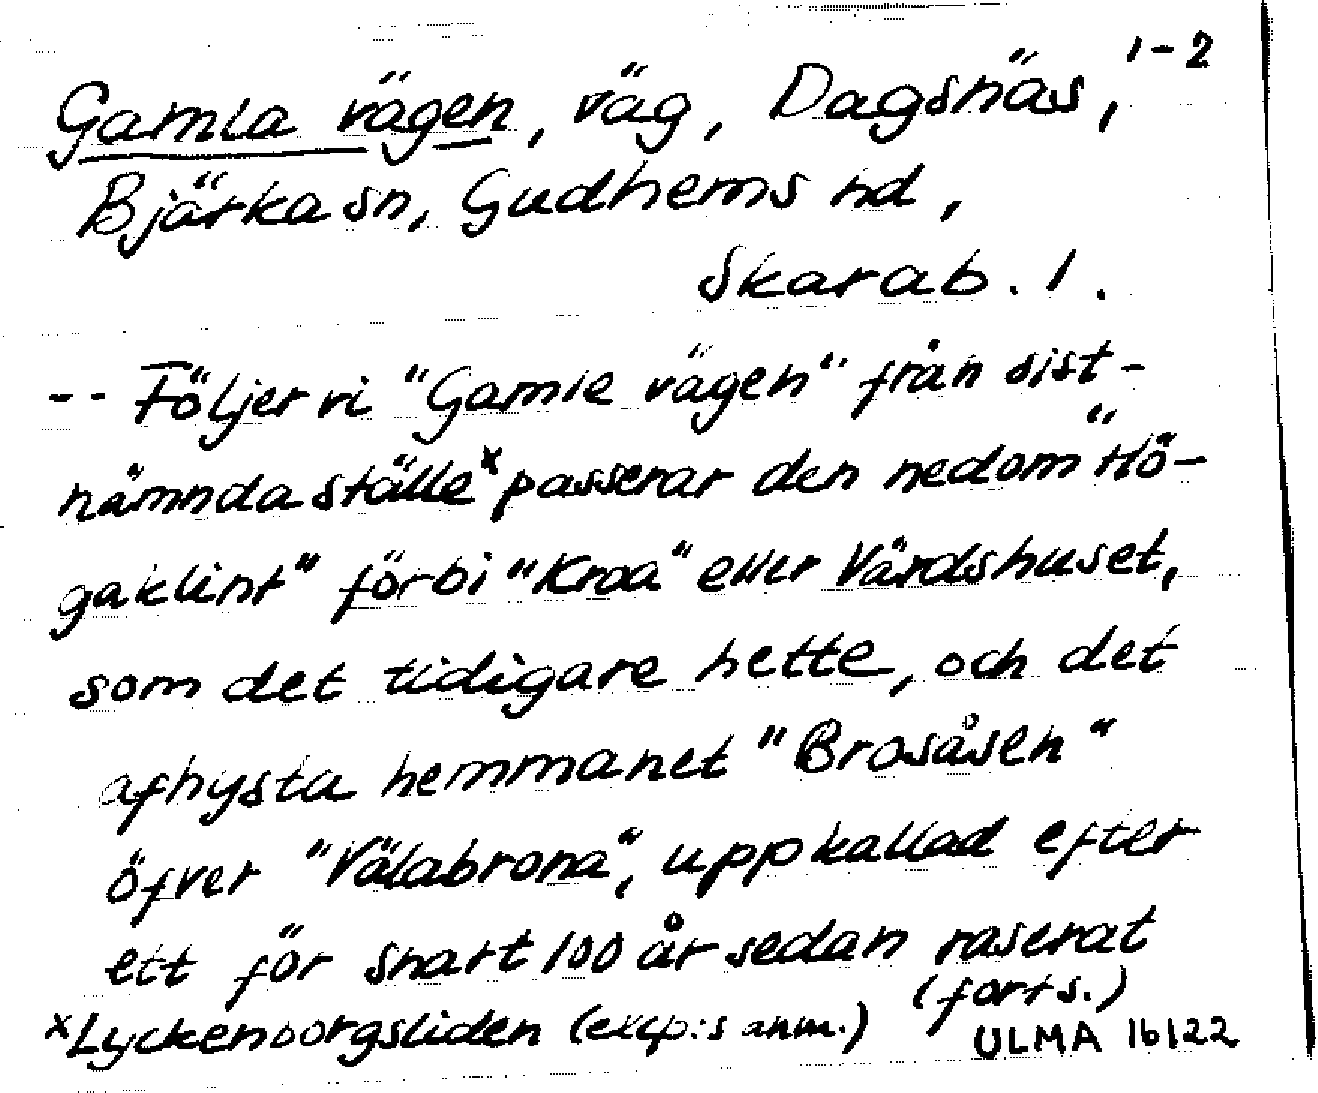 1-2
Gamla vägen, väg, Dagsnäs,
Bjärka sn, Gudhems hd,
Skarab. l.
-- Följer vi "Gamle vägen" från sist-
nämnda ställe x passerar den nedom "Hö-
gaklint" förbi "Kroa" eller Värdshuset,
som det tidigare hette, och det
afhysta hemmanet "Brosåsen"
öfver "Välabrona", uppkallad efter
ett för snart 100 år sedan raserat
(forts.)
x Lyckenborgsliden (excp:s anm.)
ULMA 16122